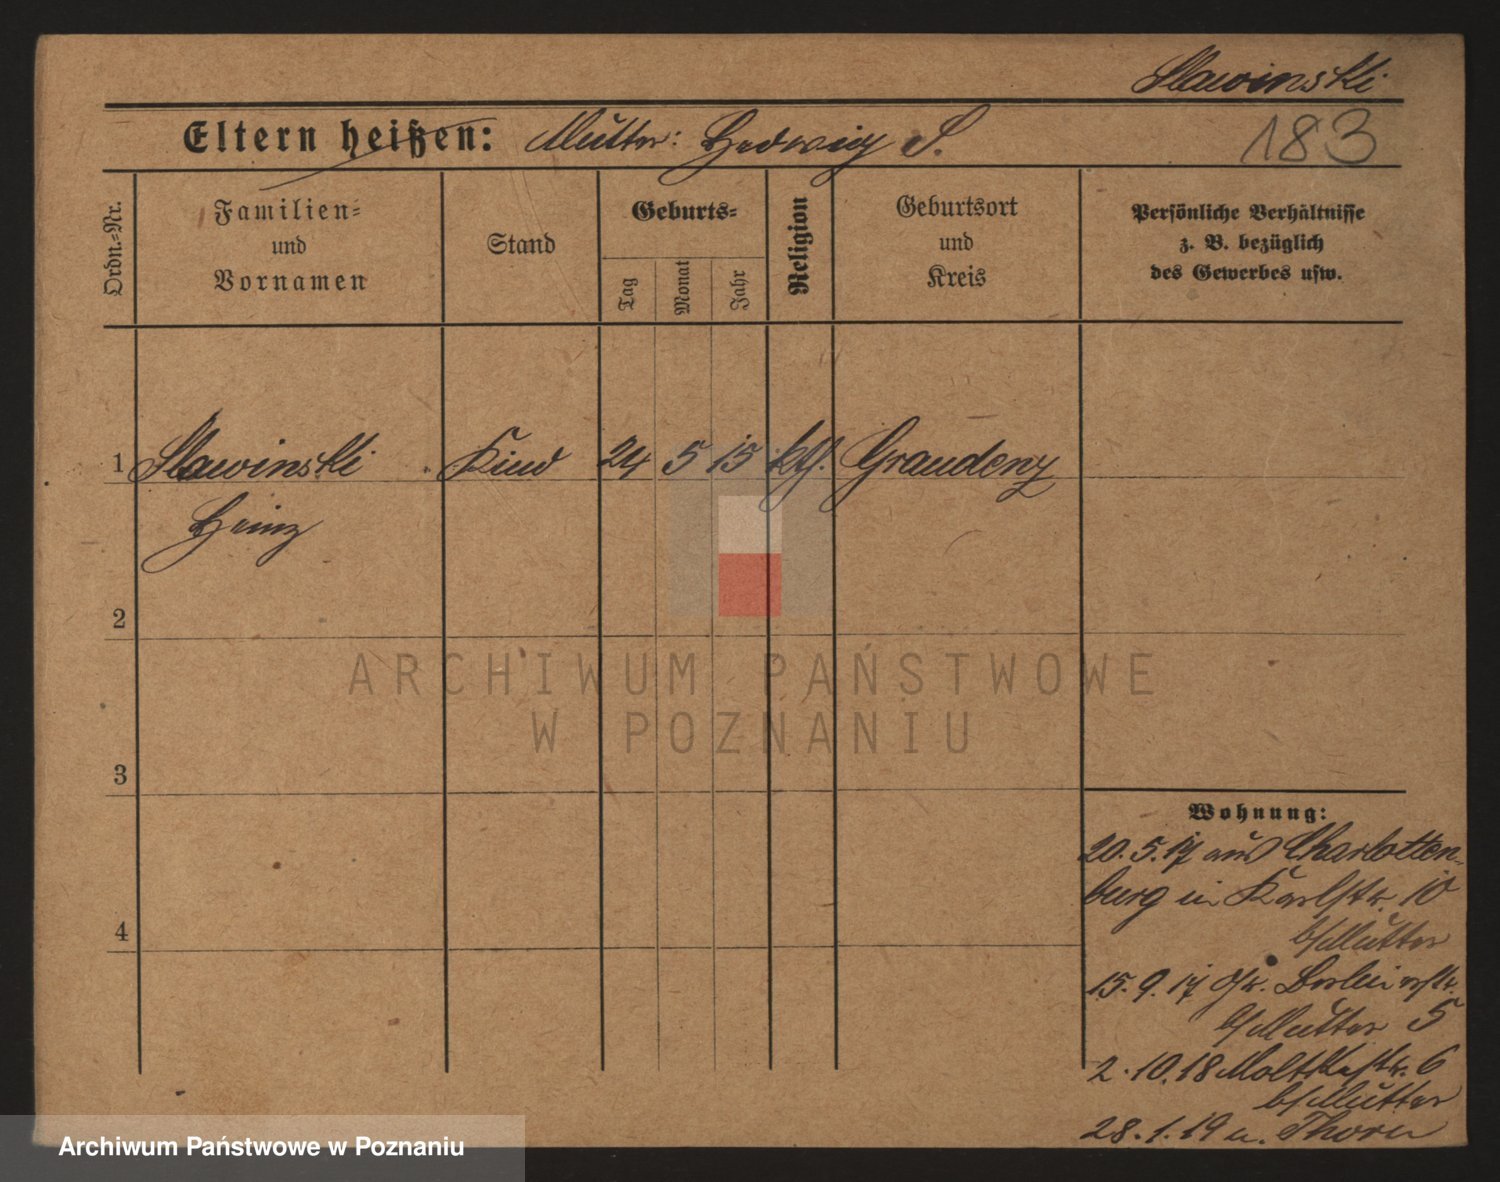 Slawinski
Eltern heißen: Mutter: Hedwig S.
183
Ordn.-Nr.
Familien-
und
Vornamen
Stand
Geburts-
Tag
Monat
Jahr
Religion
Geburtsort
und
Kreis
Persönliche Verhältnisse
z. B. bezüglich
des Gewerbes usw.
1 Slawinski Kind 24 5 15 kth. Graudenz
Heinz
2
3
4
ARCHIWUM PAŃSTWOWE
W POZNANIU
Wohnung:
20.5.17 aus Charlotten-
burg in Karlstr. 10
b/Mutter
15.9.17 Gr. Berlinerstr.
b/Mutter 5
2.10.18 Moltkestr. 6
b/Mutter
28.1.19 n. Thorn
Archiwum Państwowe w Poznaniu